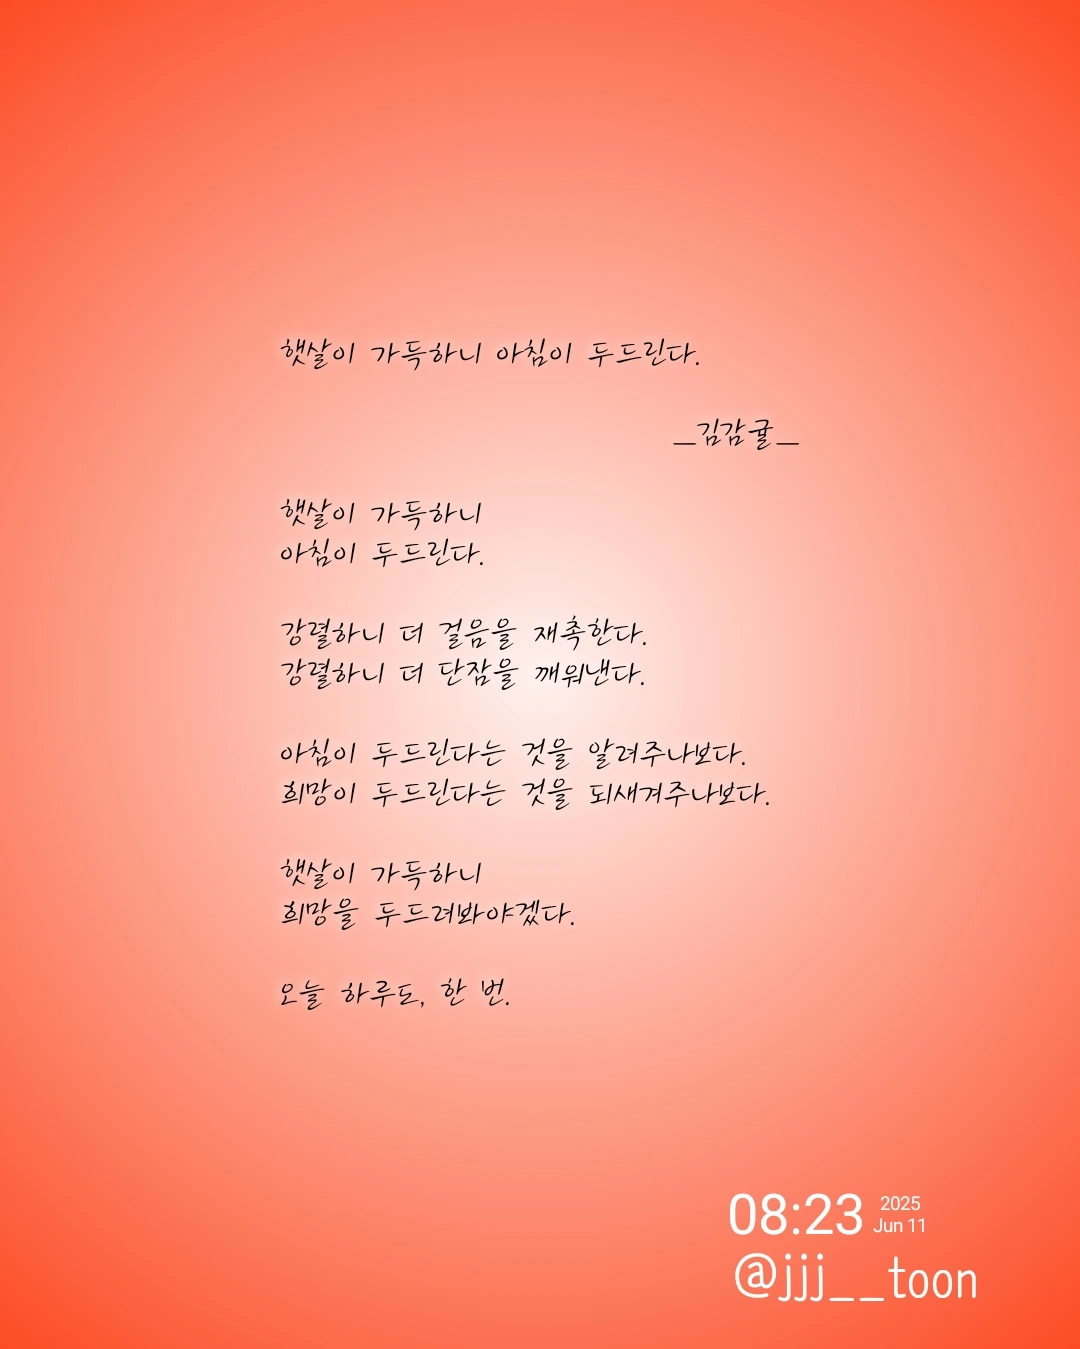 햇살이 가득하니 아침이 두드린다.
_김감귤_
햇살이 가득하니
아침이 두드린다.
강렬하니 더 걸음을 재촉한다.
강렬하니 더 단잠을 깨워낸다.
아침이 두드린다는 것을 알려주나보다.
희망이 두드린다는 것을 되새겨주나보다.
햇살이 가득하니
희망을 두드려봐야겠다.
오늘 하루도, 한 번.
08:23 2025
Jun 11
@jjj__toon